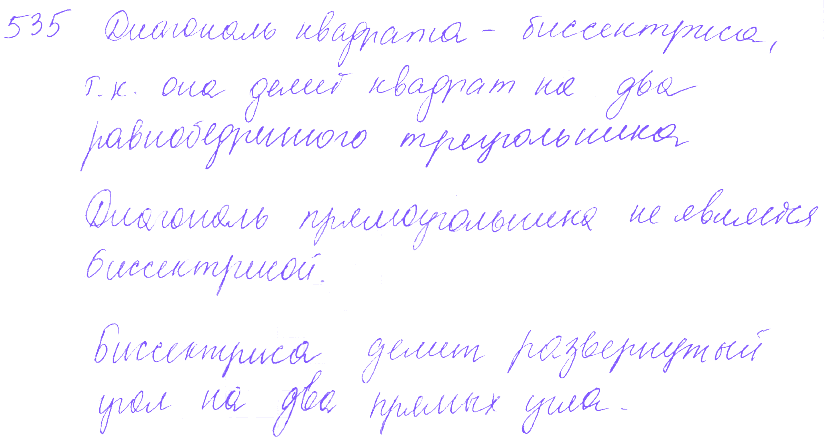 535 Диагональ квадрата - биссектриса,
т.к. она делит квадрат на два
равнобедринного треугольника
Диагональ прямоугольника не является
биссектрисой.
Биссектриса делит развернутый
угол на два прямых угла.